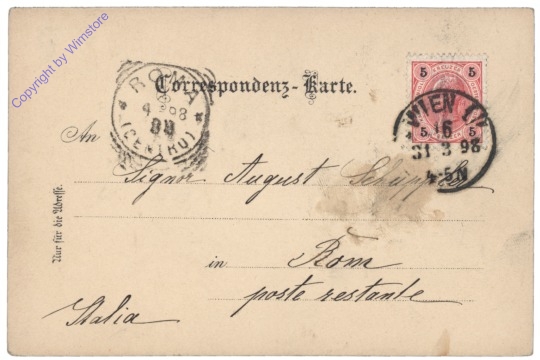 Copyright by Wimstore
ROMA
4 98
(CENTRO)
Correspondenz-Karte.
5 5
5 5
WIEN
16
31 3 98
4-5N
An
Signor August
in Rom
poste restante
Italia
Nur für die Adresse.